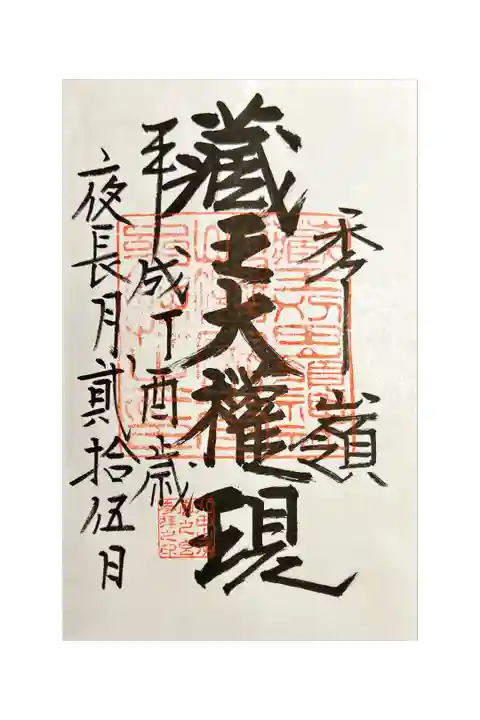 秀嶺
藏王大權現
平成丁酉歳
夜長月貳拾伍日